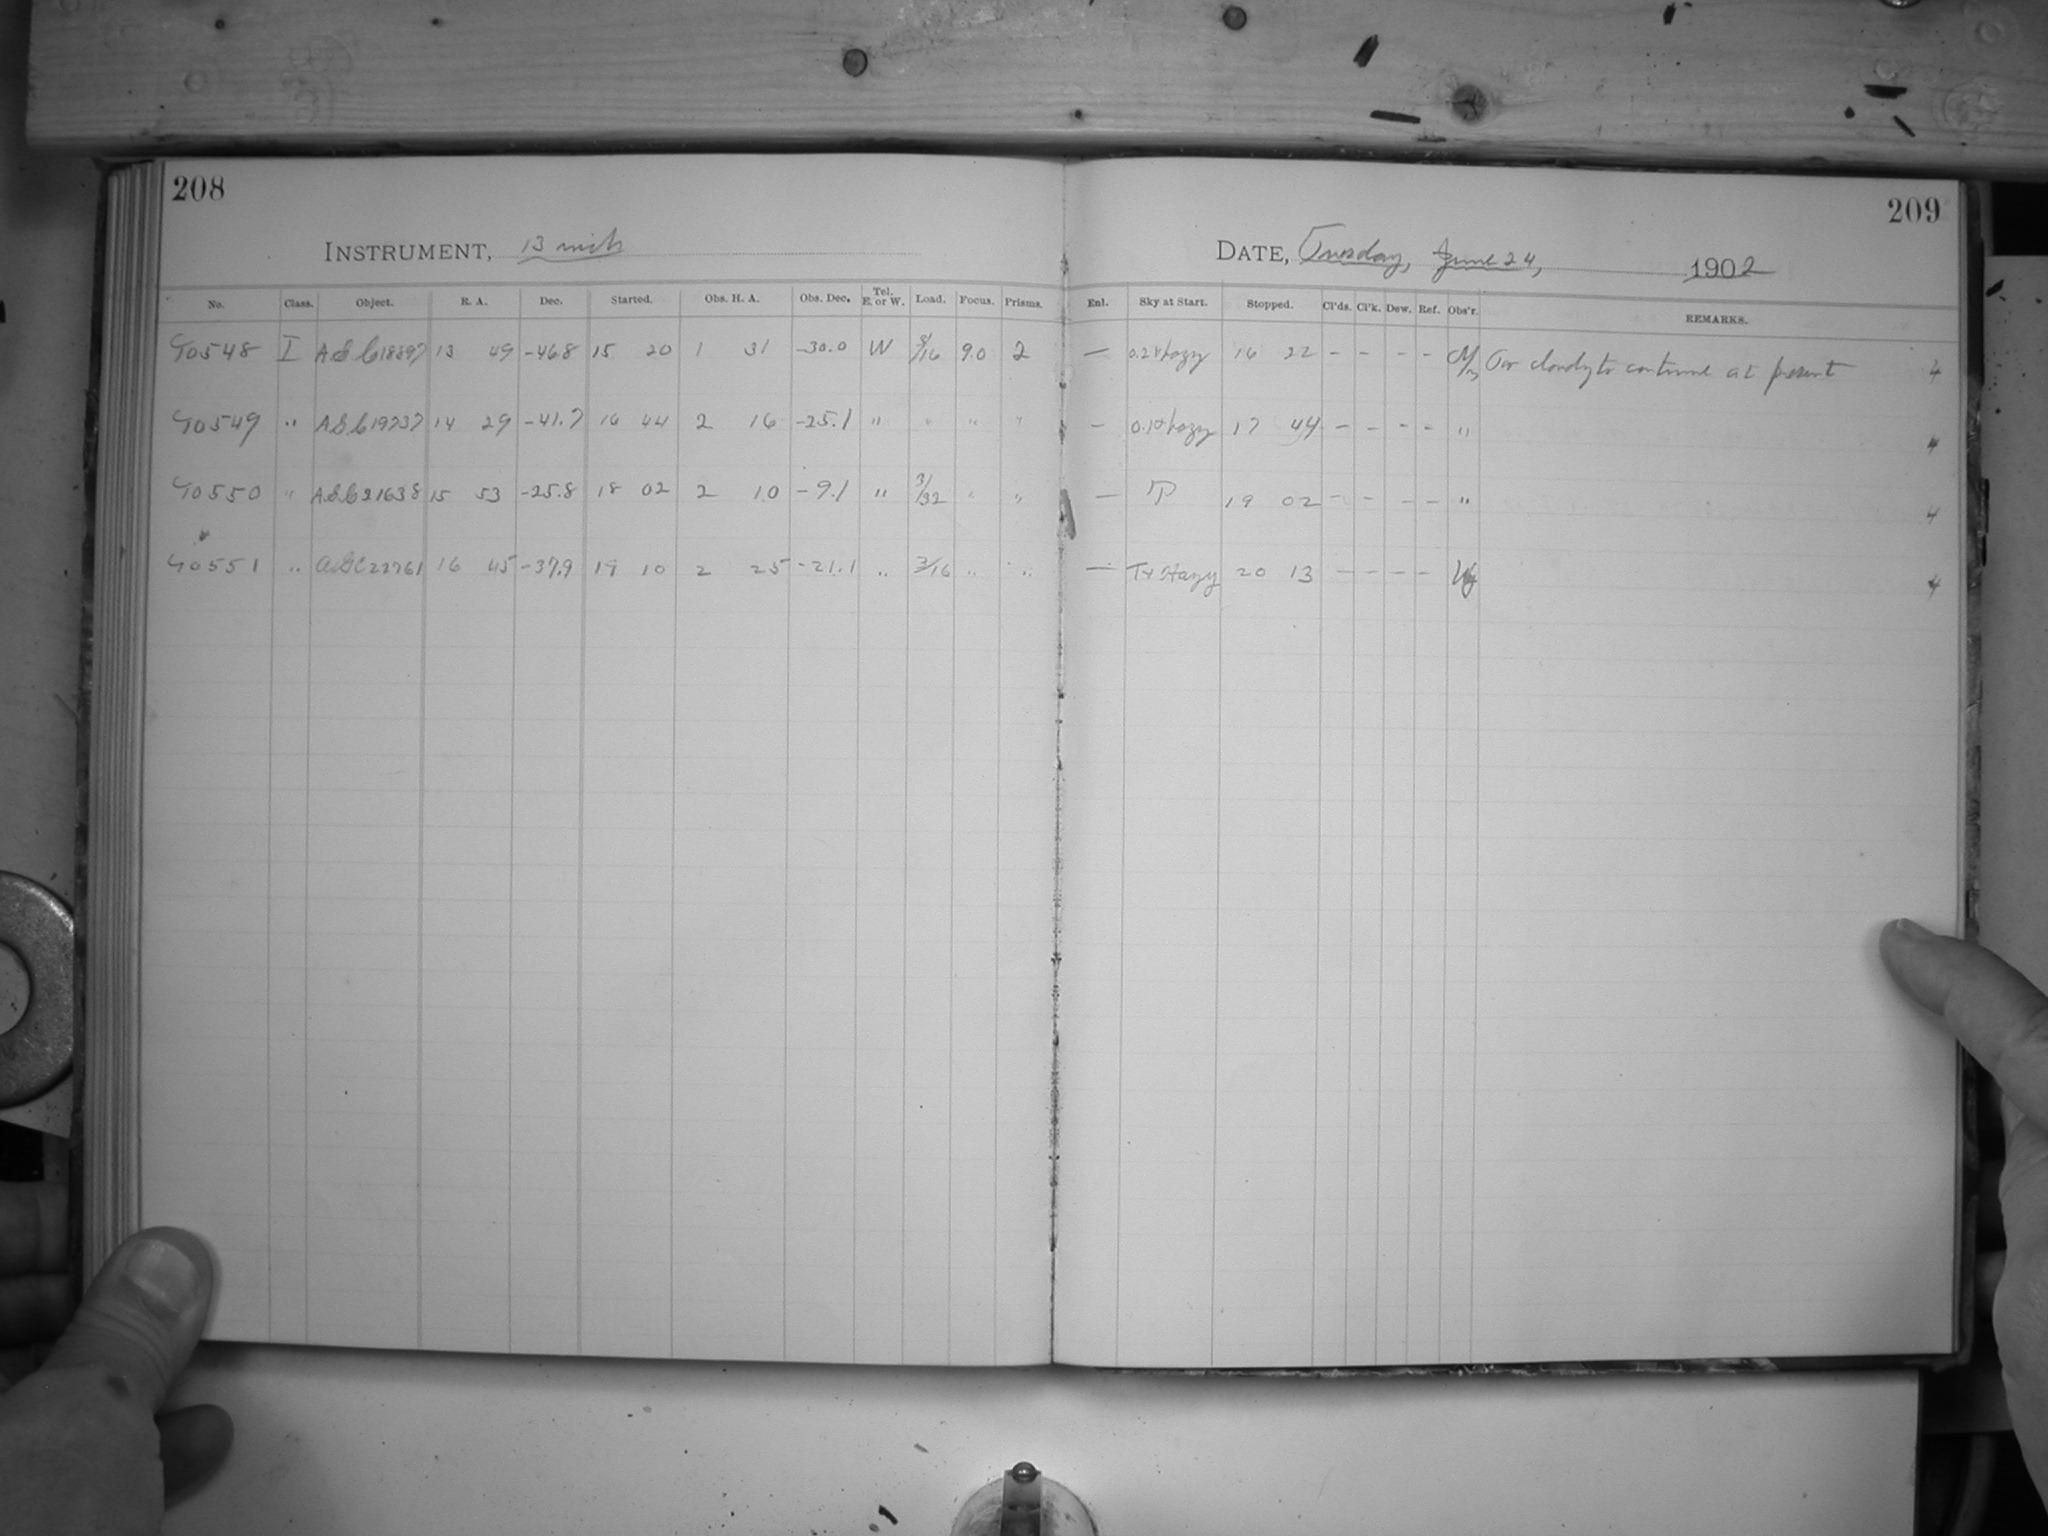 208
209
INSTRUMENT, 13 inch
DATE, Tuesday, June 24, 1902
No. Class. Object. R. A. Dec. Started. Obs. H. A. Obs. Dec. Tel. E. or W. Load. Focus. Prisms. Enl. Sky at Start. Stopped. Cl'ds. Cl'k. Dew. Ref. Obs'r. REMARKS.
40548 I A.G.C. 18897 13 49 -46.8 15 20 1 31 -30.0 W 3/16 9.0 2 — 0.2+hazy 16 22 - - - - Too cloudy to continue at present 4
40549 " A.G.C. 19737 14 29 -41.7 16 44 2 16 -25.1 " " " " - 0.1+hazy 17 44 - - - - " 4
40550 " A.G.C. 21638 15 53 -25.8 18 02 2 10 -9.1 " 3/32 " " — T 19 02 - - - - " 4
40551 " AGC 22761 16 45 -37.9 19 10 2 25 -21.1 " 3/16 " " — T+Hazy 20 13 - - - - 4